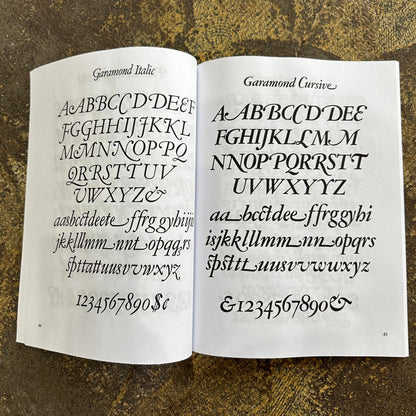 Garamond Italic
AABBCCDDEEF
FGGHHIJJKLL
MMNNOPPQ
QRRSTTTUUV
UWXYZZ&
aasbcctdeete ffrggyhiij
jkkllllmm nnt opqqrs
spttattuusvwxyz
1234567890$¢
Garamond Cursive
AABBCCDDE
FGHIJKLLMM
NNOPPQRRSTT
UVWXYYZ
aa bcctdee ffrggyhi
isjkkllmm nn opqqrr
spsttt uusvwxyyz
&1234567890&
43